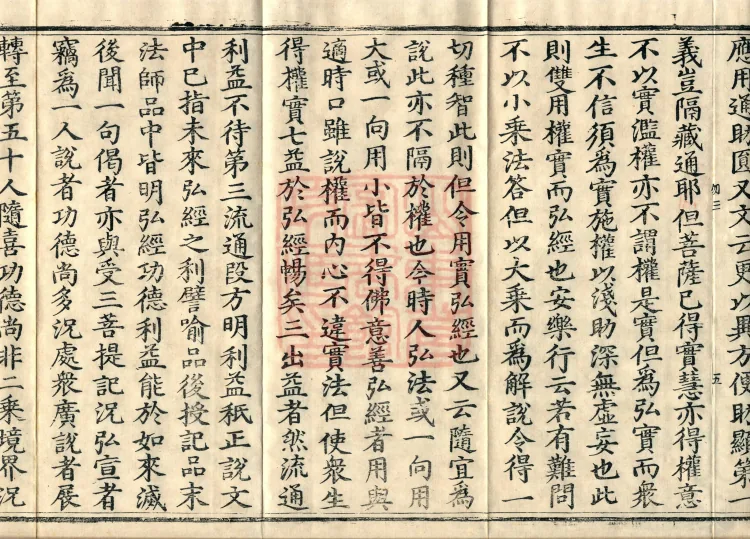 應用通時圓又文云更以異方便助顯第一
義豈隔藏通耶但菩薩已得實慧亦得權意
不以實濫權亦不謂權是實但爲弘實而衆
生不信須爲實施權以淺助深無虛妄也此
則雙用權實而弘經也安樂行云若有難問
不以小乘法答但以大乘而爲解說令得一
切種智此則但令用實弘經也又云隨宜爲
說此亦不隔於權也今時人弘法或一向用
大或一向用小皆不得佛意善弘經者用與
適時口雖說權而內心不違實法但使衆生
得權實七益於弘經暢矣三出益者然流通
利益不待第三流通段方明利益秖正說文
中已指未來弘經之利譬喻品後授記品末
法師品中皆明弘經功德利益能於如來滅
後聞一句偈者亦與受三菩提記況弘宣者
竊爲一人說者功德尚多況處衆廣說者展
轉至第五十人隨喜功德尚非二乘境界況
五